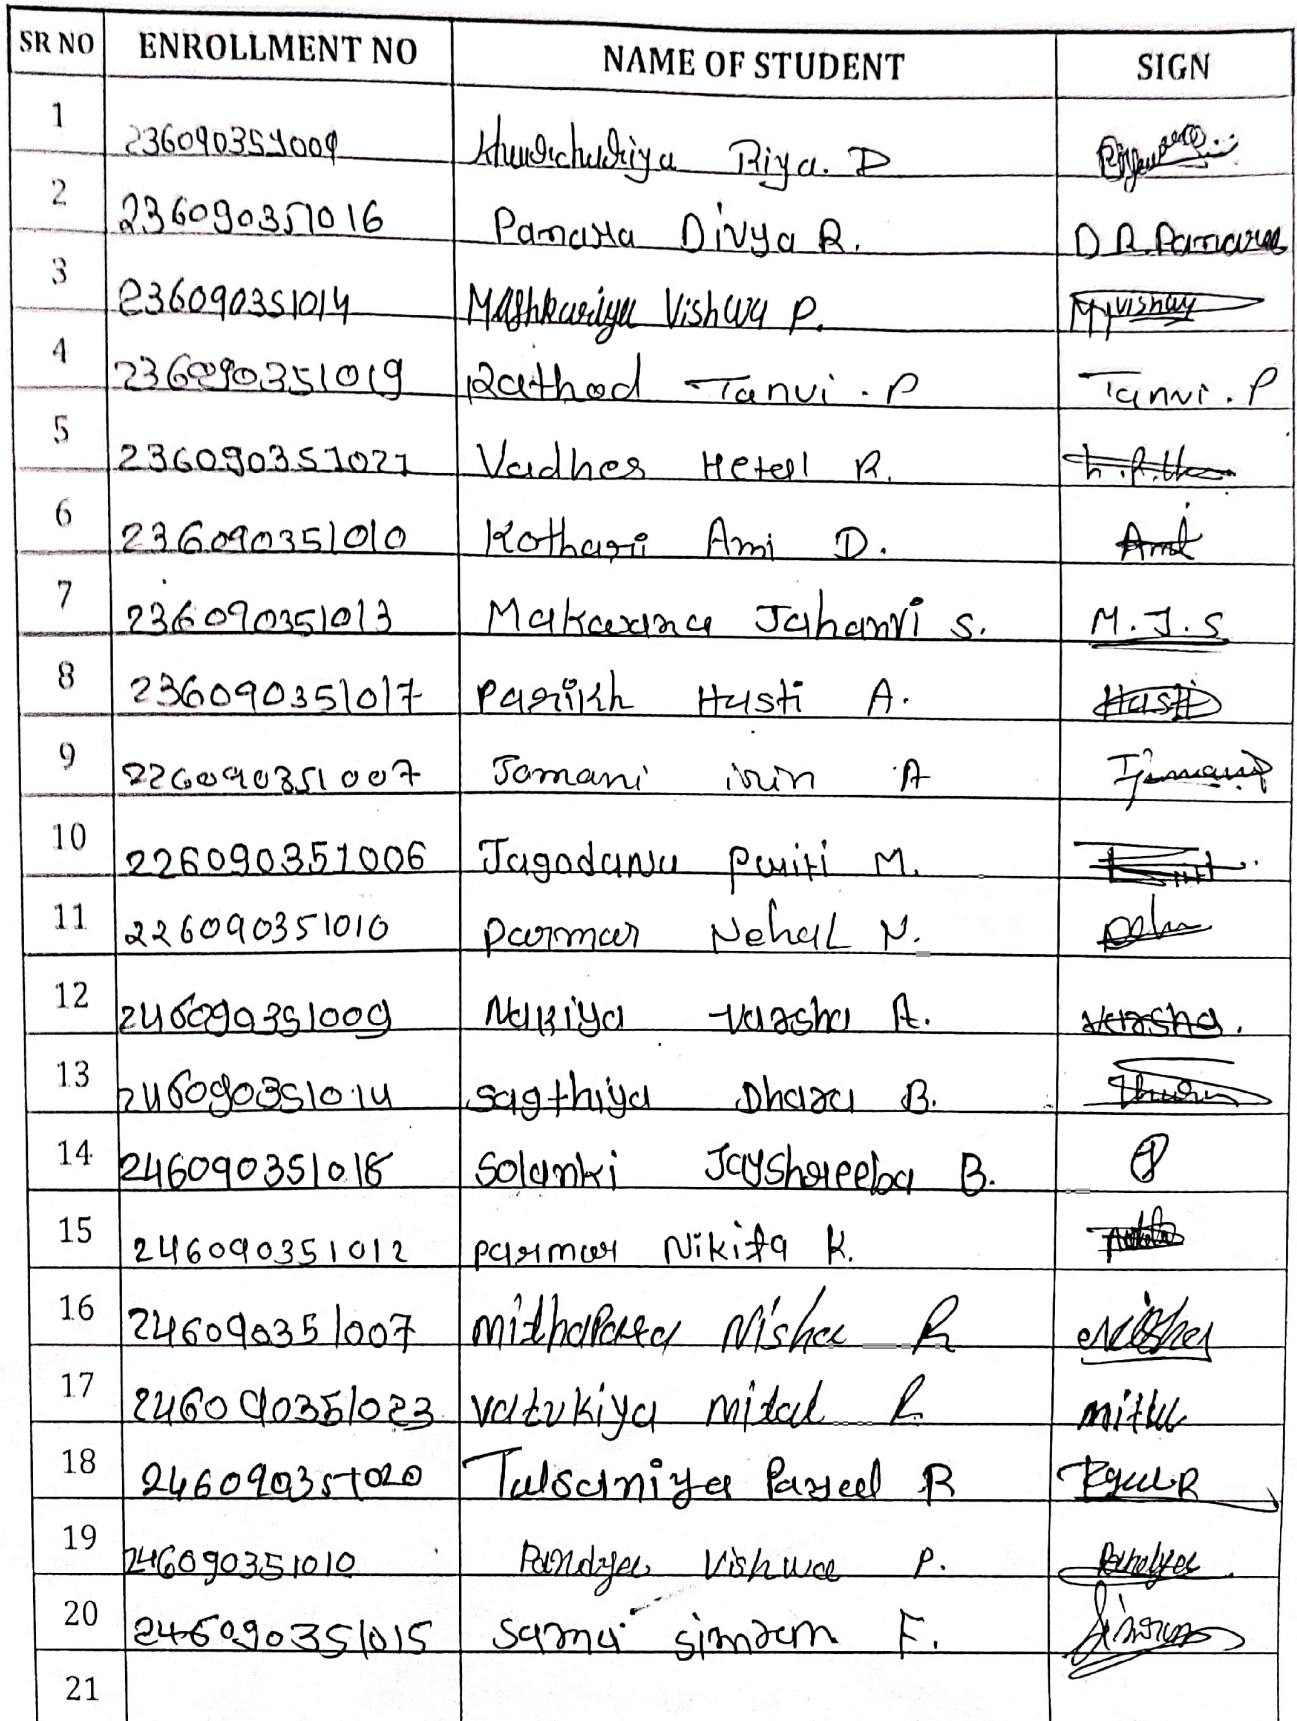 SR NO ENROLLMENT NO NAME OF STUDENT SIGN
1 236090351009 Khurchuriya Riya. D
2 236090351016 Panara Divya R. D R Panaraa
3 236090351014 Mashkariya Vishwa P.
4 236090351019 Rathod Tanvi . P Tanvi . P
5 236090351021 Vadher Hetal R.
6 236090351010 Kothari Ami D. Ami
7 236090351013 Makwana Jahanvi S. M. J. S
8 236090351017 Parikh Hasti A. Hasti
9 226090351007 Jamani irin A
10 226090351006 Jagodana Priti M.
11 226090351010 parmar Nehal N.
12 246090351009 Nakiya varsha A. varsha.
13 246090351014 sagthiya Dhara B.
14 246090351018 Solanki Jayshreeba B.
15 246090351012 parmar Nikita K.
16 246090351007 mithapara Nisha R Nisha
17 246090351023 vatukiya mital R. mittu
18 246090351020 Talsaniya Payal R
19 246090351010 Pandya Vishwa P. Pandya
20 246090351015 sama simran F. Simran
21